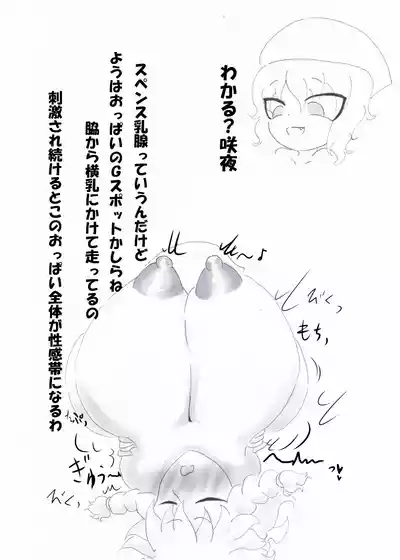 わかる?咲夜
スペンス乳腺っていうんだけど
ようはおっぱいのGスポットかしらね
脇から横乳にかけて走ってるの
刺激され続けるとこのおっぱい全体が性感帯になるわ
びくっ
もち、
ぎゅう～
びくっ